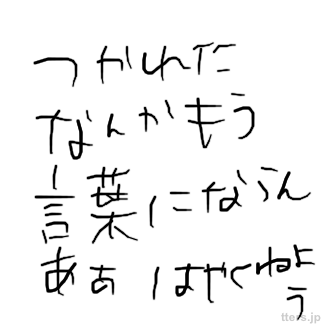 つかれた
なんかもう
言葉にならん
ああ はやくねよ
う
tters.jp